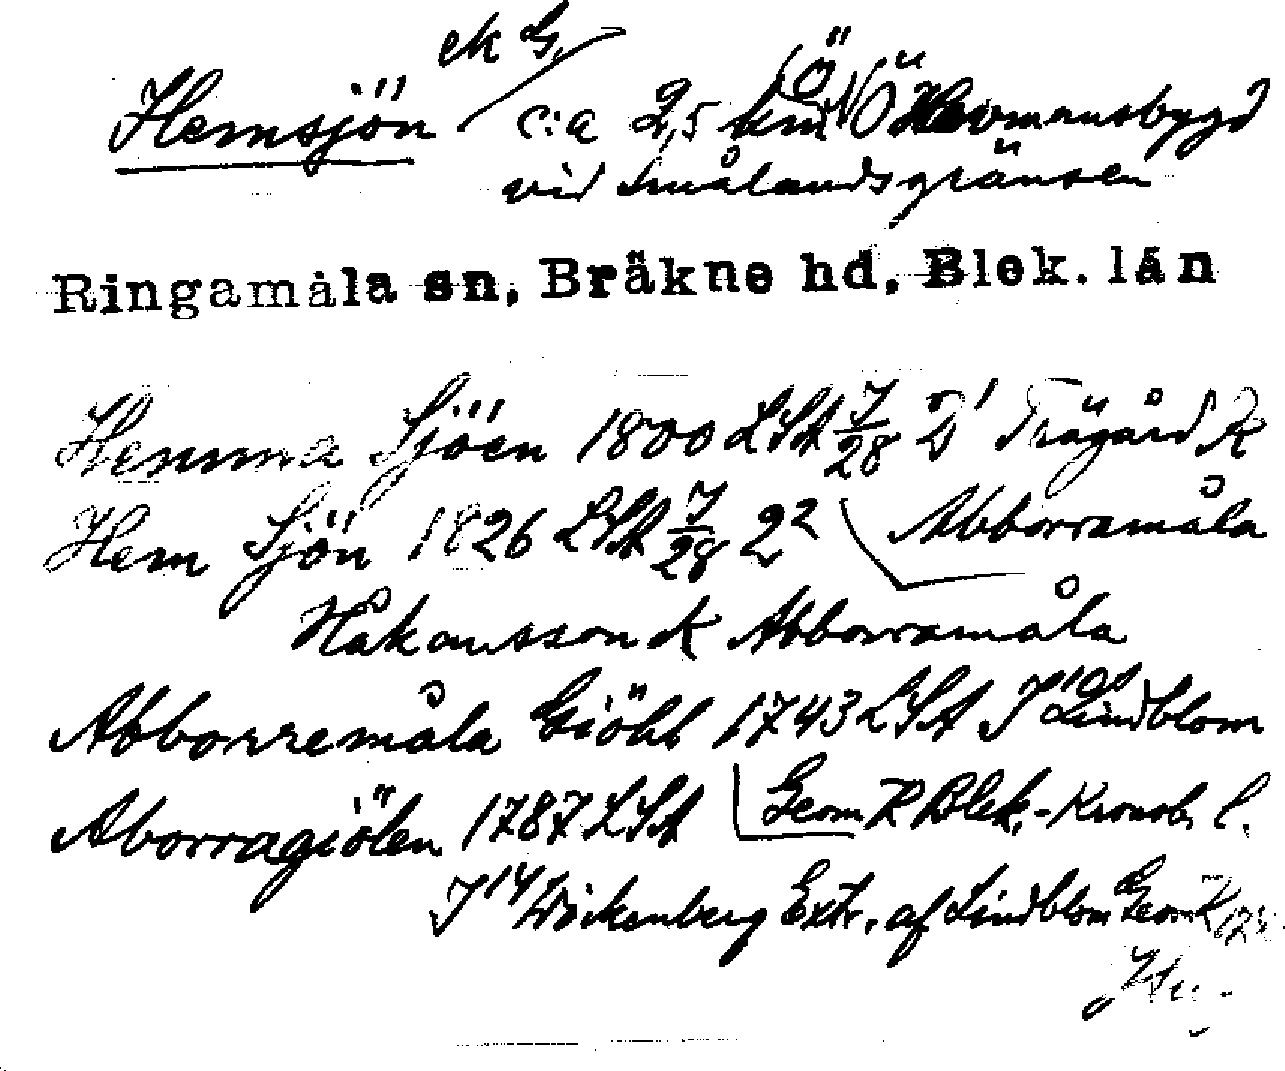 ek G.
Hemsjön c:a 2,5 km (ö) N Ö Hermansbygd
vid Smålandsgränsen
Ringamåla sn, Bräkne hd, Blek. län
Hemma Sjöen 1800 LSA 7/28 D1 Trägård K
Hem Sjön 1826 LSA 7/28 2² Abborramåla
Håkansson K Abborramåla
Abborremåla Giöhl 1743 LSA J 10s Lindblom
Aborragiölen 1787 LSA Geom K Blek.-Kronob. l.
J 14 Wickenberg Extr. af Lindblom Geom K